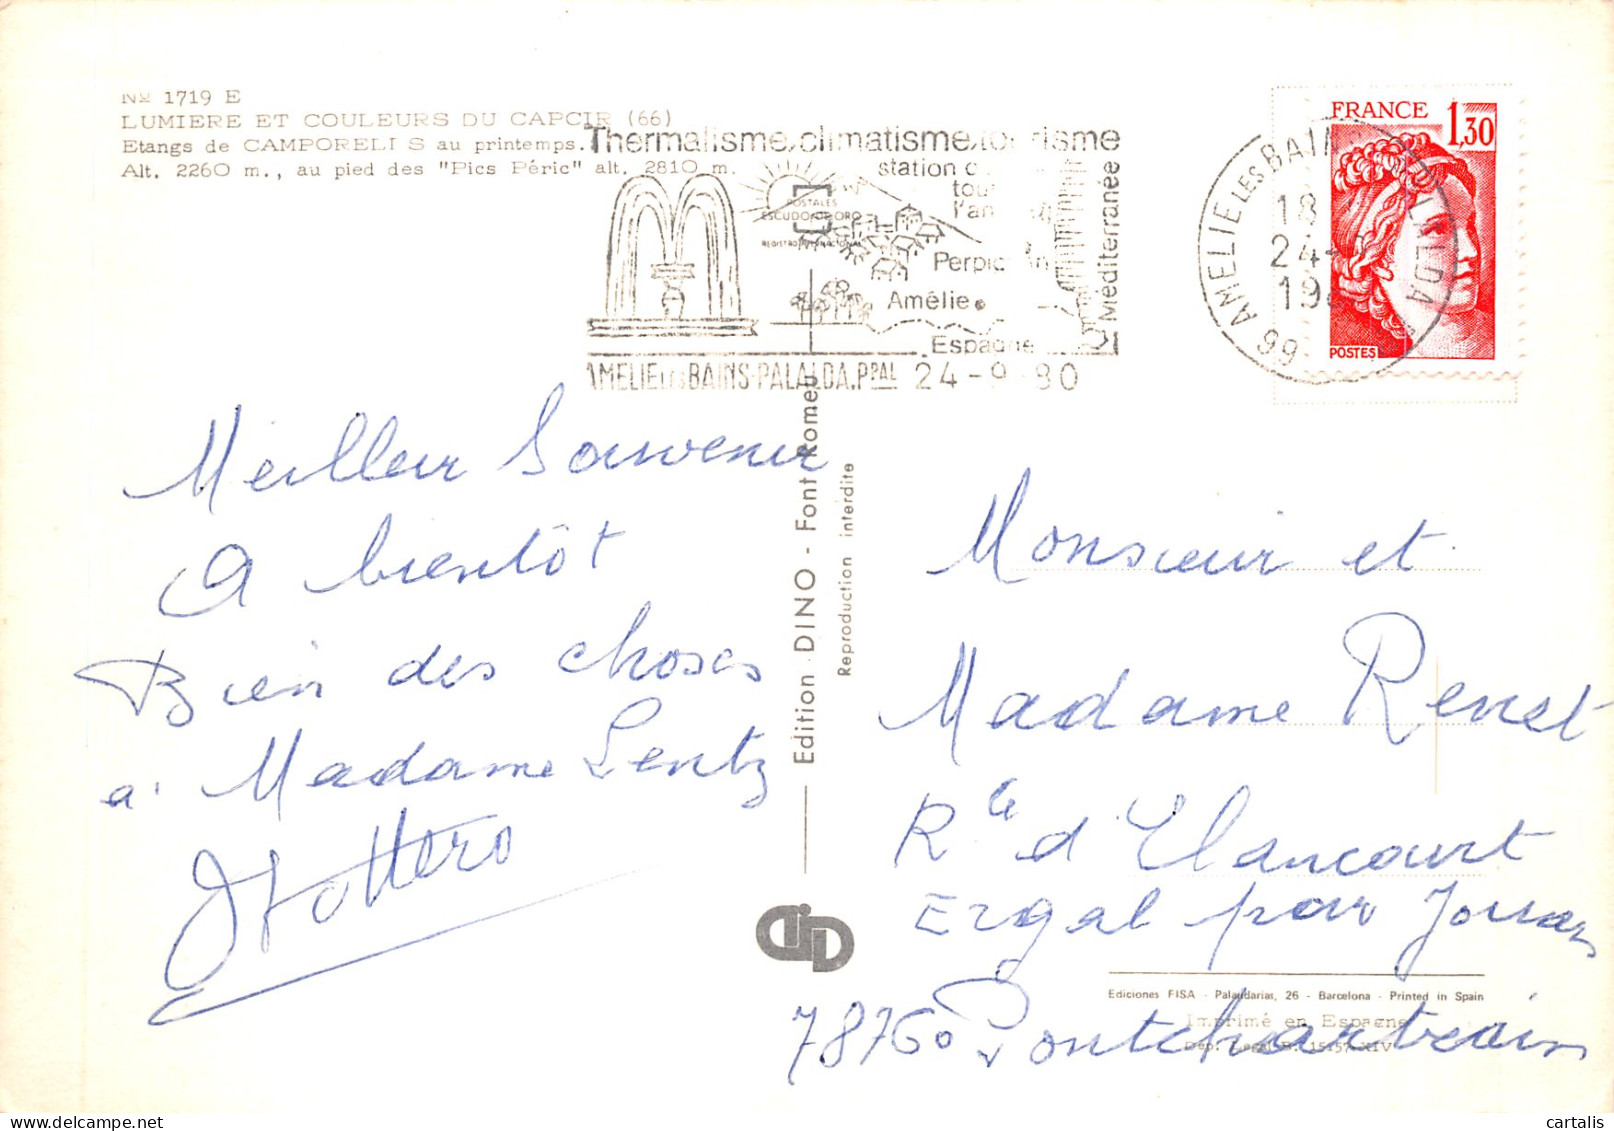 Nº 1719 E
LUMIERE ET COULEURS DU CAPCIR (66)
Etangs de CAMPORELI S au printemps.
Alt. 2260 m., au pied des "Pics Péric" alt. 2810 m.
Thermalisme, climatisme, tourisme
station
Méditerranée
POSTALES
ESCUDO DE ORO
Amélie
Espagne
AMELIE LES BAINS-PALALDA.PPAL 24-9-80
FRANCE 1,30
POSTES
66 AMELIE LES BAINS PALALDA
18
24
Meilleur Souvenir
A bientôt
Bien des choses
a Madame Lentz
Edition DINO - Font Romeu
Reproduction interdite
Monsieur et
Madame Renst
Rte d'Elancourt
Ergal par Jouars
78760 Pontchartrain
Ediciones FISA - Palaudarias, 26 - Barcelona - Printed in Spain
Imprimé en Espagne
Dep. Legal B. 15157-XIV
cartalis